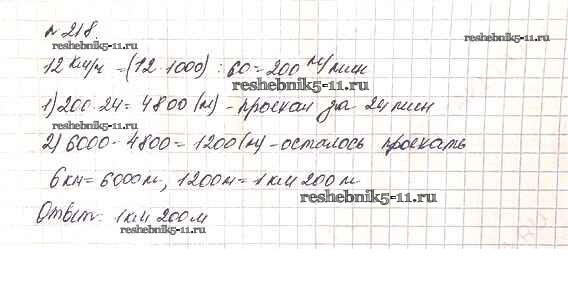 № 218.
reshebnik5-11.ru
12 км/ч = (12·1000) : 60 = 200 м/мин
reshebnik5-11.ru
1) 200·24 = 4800 (м) - проехал за 24 мин
reshebnik5-11.ru
2) 6000 - 4800 = 1200 (м) - осталось проехать
6 км = 6000 м, 1200 м = 1 км 200 м
reshebnik5-11.ru
Ответ: 1 км 200 м
reshebnik5-11.ru